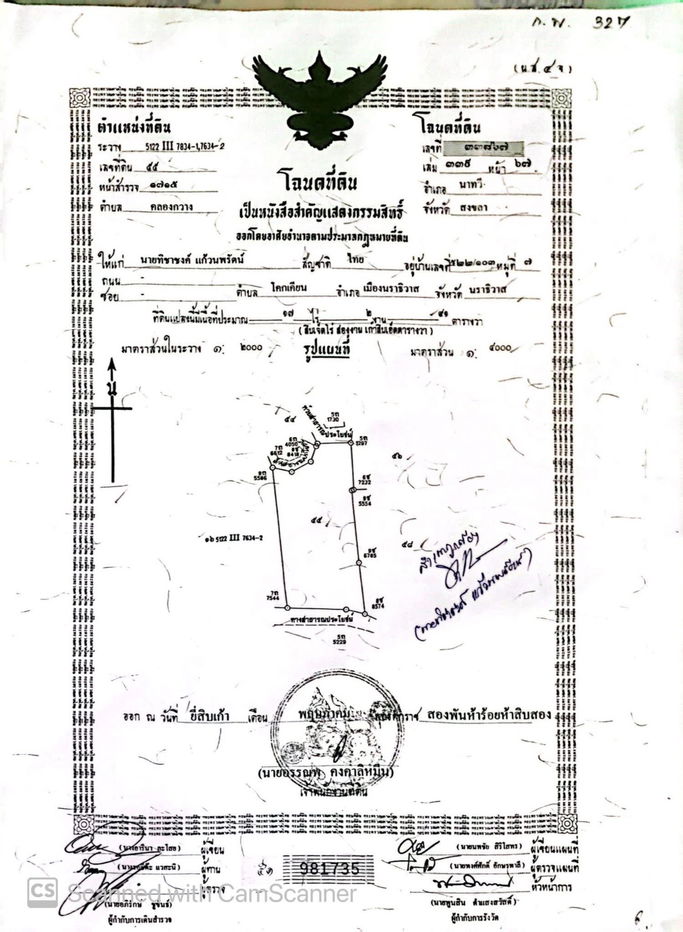 ก.พ. 327
(น.ส. ๔ จ)
ตำแหน่งที่ดิน
ระวาง 5122 III 7834-1,7634-2
เลขที่ดิน ๕๕
หน้าสำรวจ ๑๗๑๕
ตำบล คลองกวาง
โฉนดที่ดิน
เลขที่ ๓๓๘๖๗
เล่ม ๓๓๙ หน้า ๖๗
อำเภอ นาทวี
จังหวัด สงขลา
โฉนดที่ดิน
เป็นหนังสือสำคัญแสดงกรรมสิทธิ์
ออกโดยอาศัยอำนาจตามประมวลกฎหมายที่ดิน
ให้แก่ นายทิชาชงค์ แก้วนพรัตน์ สัญชาติ ไทย อยู่บ้านเลขที่ ๕๒๒/๑๐๓ หมู่ที่ ๗
ถนน -
ซอย - ตำบล โคกเคียน อำเภอ เมืองนราธิวาส จังหวัด นราธิวาส
ที่ดินแปลงนี้มีเนื้อที่ประมาณ ๑๗ ไร่ ๒ งาน ๙๑ ตารางวา
(สิบเจ็ดไร่ สองงาน เก้าสิบเอ็ดตารางวา)
มาตราส่วนในระวาง ๑: ๒๐๐๐ รูปแผนที่ มาตราส่วน ๑: ๔๐๐๐
น
๕๔
5ท 1730
ห้วยสาธารณประโยชน์
6ท 4050
5ท 1297
7ท 6612
8ช 8418
๕๖
9ท 5586
6ช 7232
8ช 5554
๕๕
๑๖ 5122 III 7634-2
๕๘
8ช 6785
7ท 7544
8ช 8574
ทางสาธารณประโยชน์
5ท 5229
สำเนาถูกต้อง
ออก ณ วันที่ ยี่สิบเก้า เดือน พฤษภาคม พุทธศักราช สองพันห้าร้อยห้าสิบสอง
เจ้าพนักงานที่ดิน
ผู้เขียน
ผู้ทาน
ผู้ตรวจ
ผู้กำกับการเดินสำรวจ
๕๑ 981735
ผู้เขียนแผนที่
ผู้ตรวจแผนที่
หัวหน้าการ
ผู้กำกับการรังวัด
CS Scanned with CamScanner